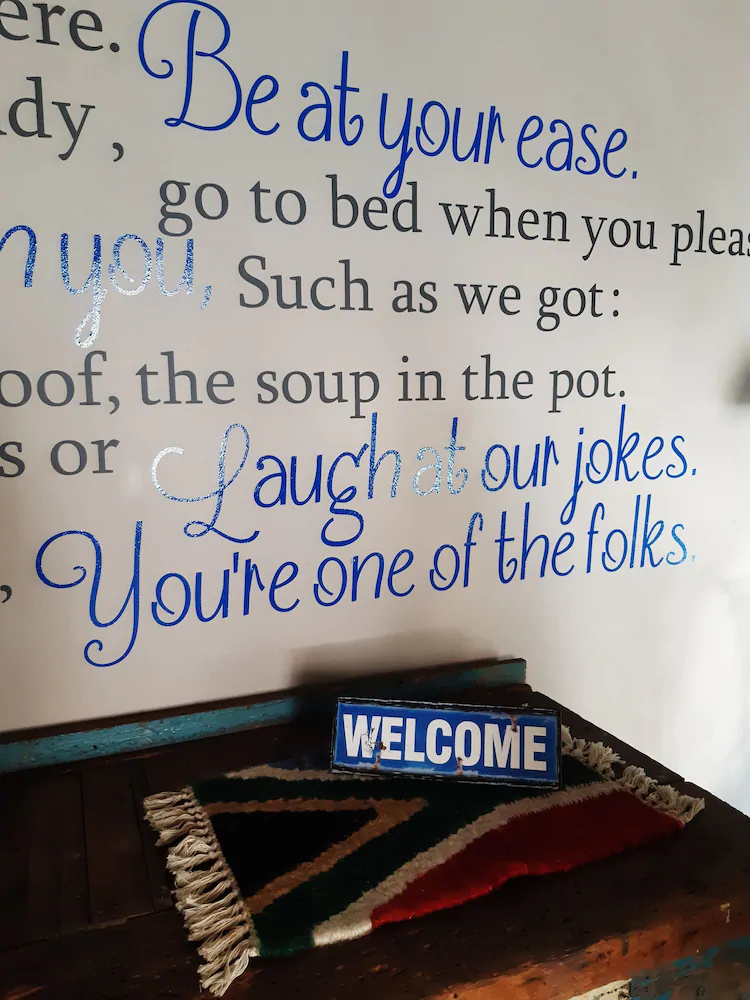 ere. Be at your ease.
dy, go to bed when you pleas
n you, Such as we got:
oof, the soup in the pot.
s or Laugh at our jokes.
, You're one of the folks.
WELCOME